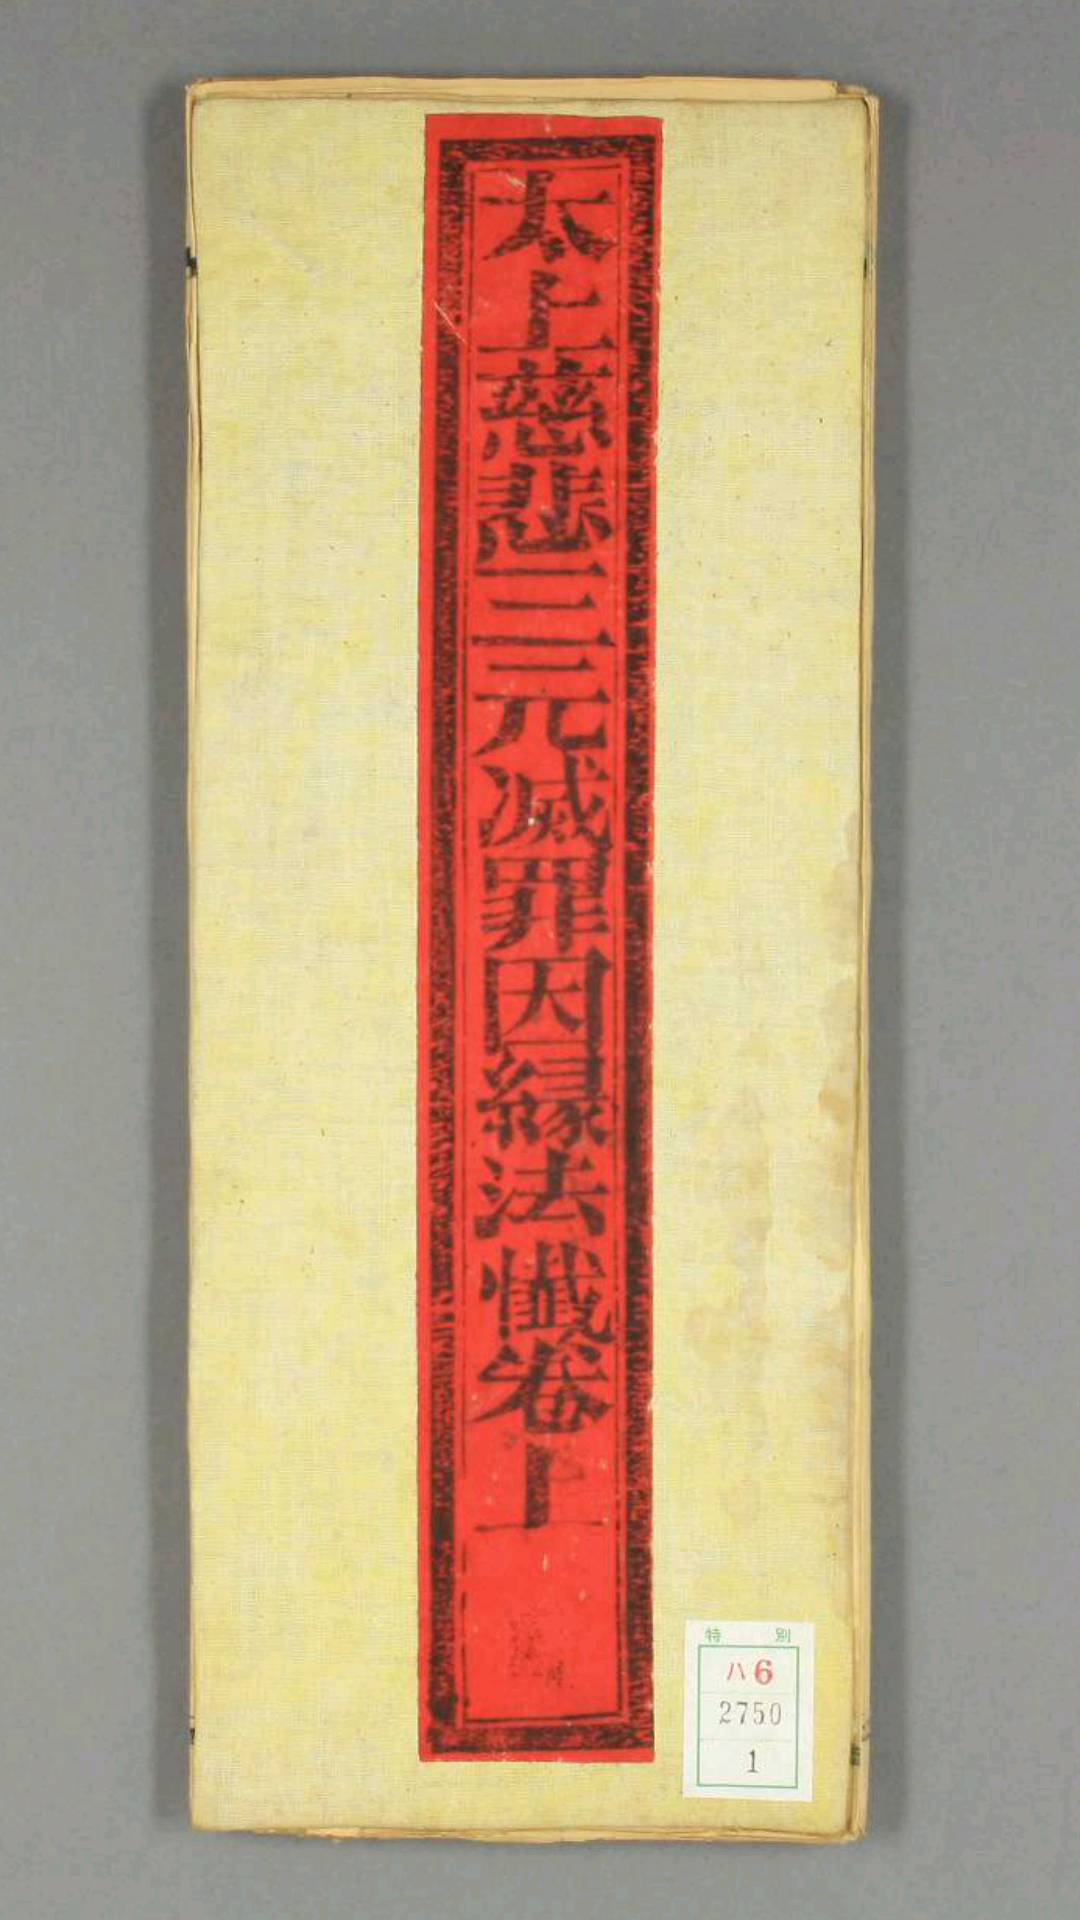 太上慈悲三元滅罪因縁法懺卷上
特別
ハ6
2750
1